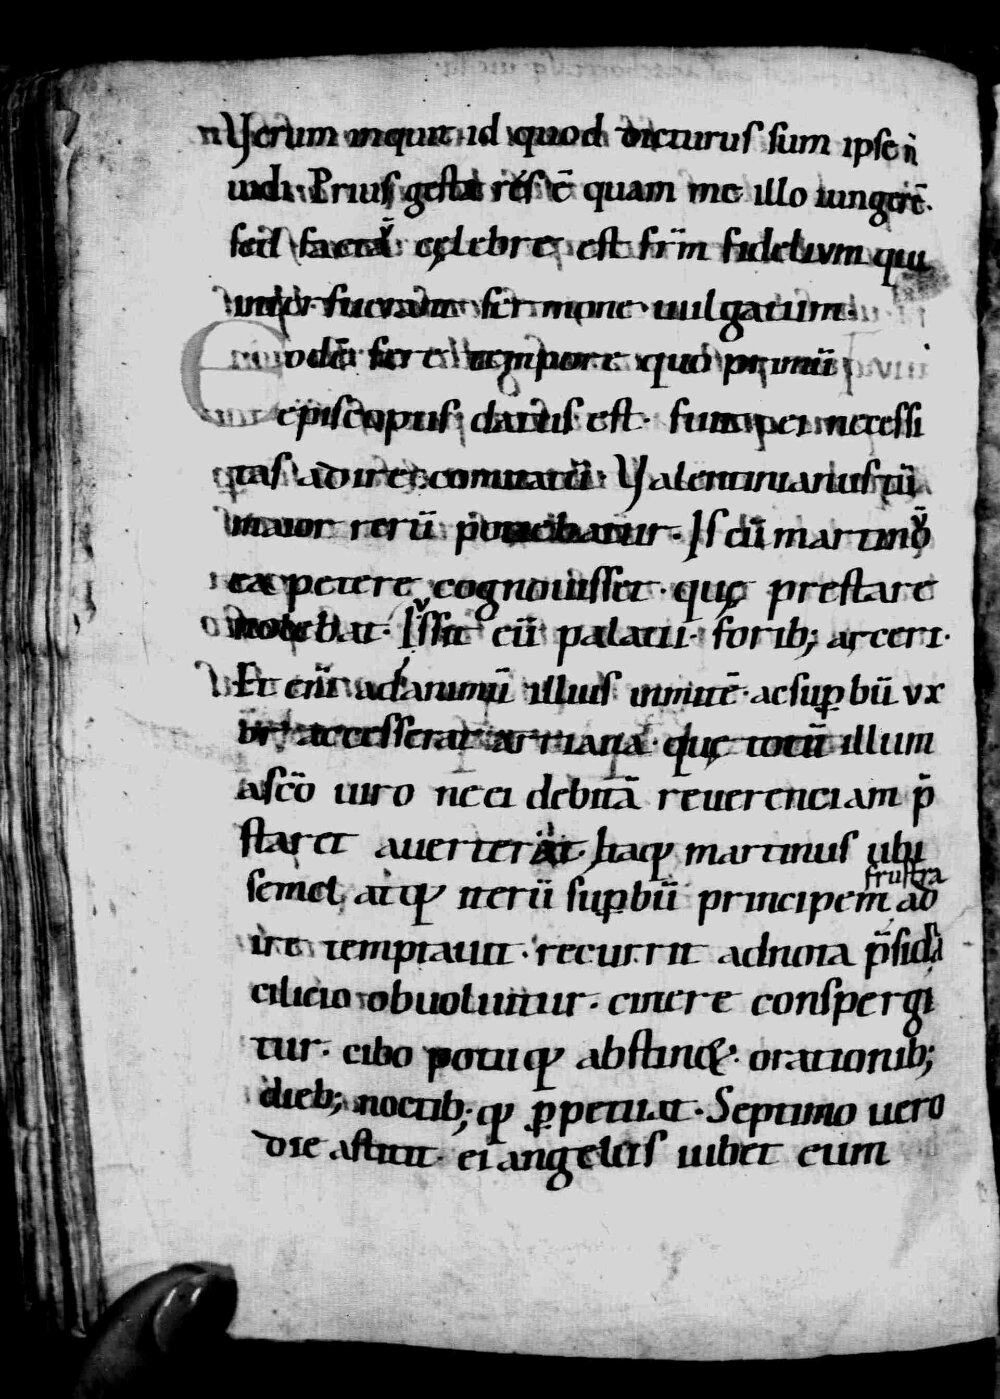 Verum inquit id quod dicturus sum ipse ñ
uidi. Prius gesta res ē quam me illo iungerē.
sed facta celebre est frm̄ fidelium qui
interfuerant sermone uulgatum.
Eodē fere tempore quo primū
episcopus datus est. fuit ei necessi
tas adire comitatū. Valentinianus tū
maior rerū potiebatur. Is cū martinū
ex petere cognouisset. quę prestare
nolebat. Iussit eū palatii forib; arceri.
Et eni ad animū illius inmitē ac suꝑbū vx
or accesserat arriana. quę totū illum
a sc̄o uiro ne ei debitā reuerentiam p̄
staret auerterat. Itaq; martinus ubi
semel atq; iterū suꝑbū principem frustra ad
ire temptauit. recurrit ad nota p̄sidia
cilicio obuoluitur. cinere conspergi
tur. cibo potuq; abstinet. orationib;
dieb; noctib;q; ꝑpetuat. Septimo uero
die astitit ei angelus iubet eum